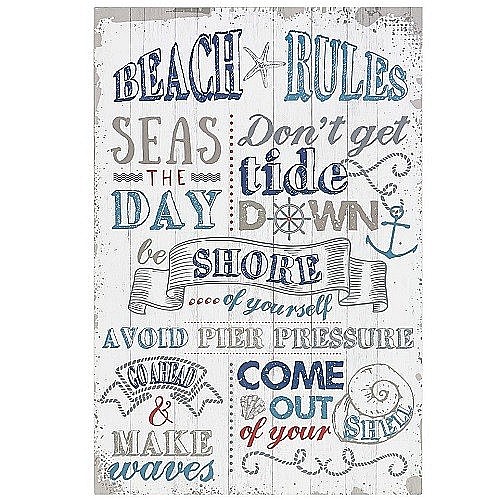 BEACH RULES
SEAS
THE
DAY
Don't get
tide
DOWN
be
SHORE
....of yourself
AVOID PIER PRESSURE
GO AHEAD
&
MAKE
waves
COME
OUT
of your
SHELL